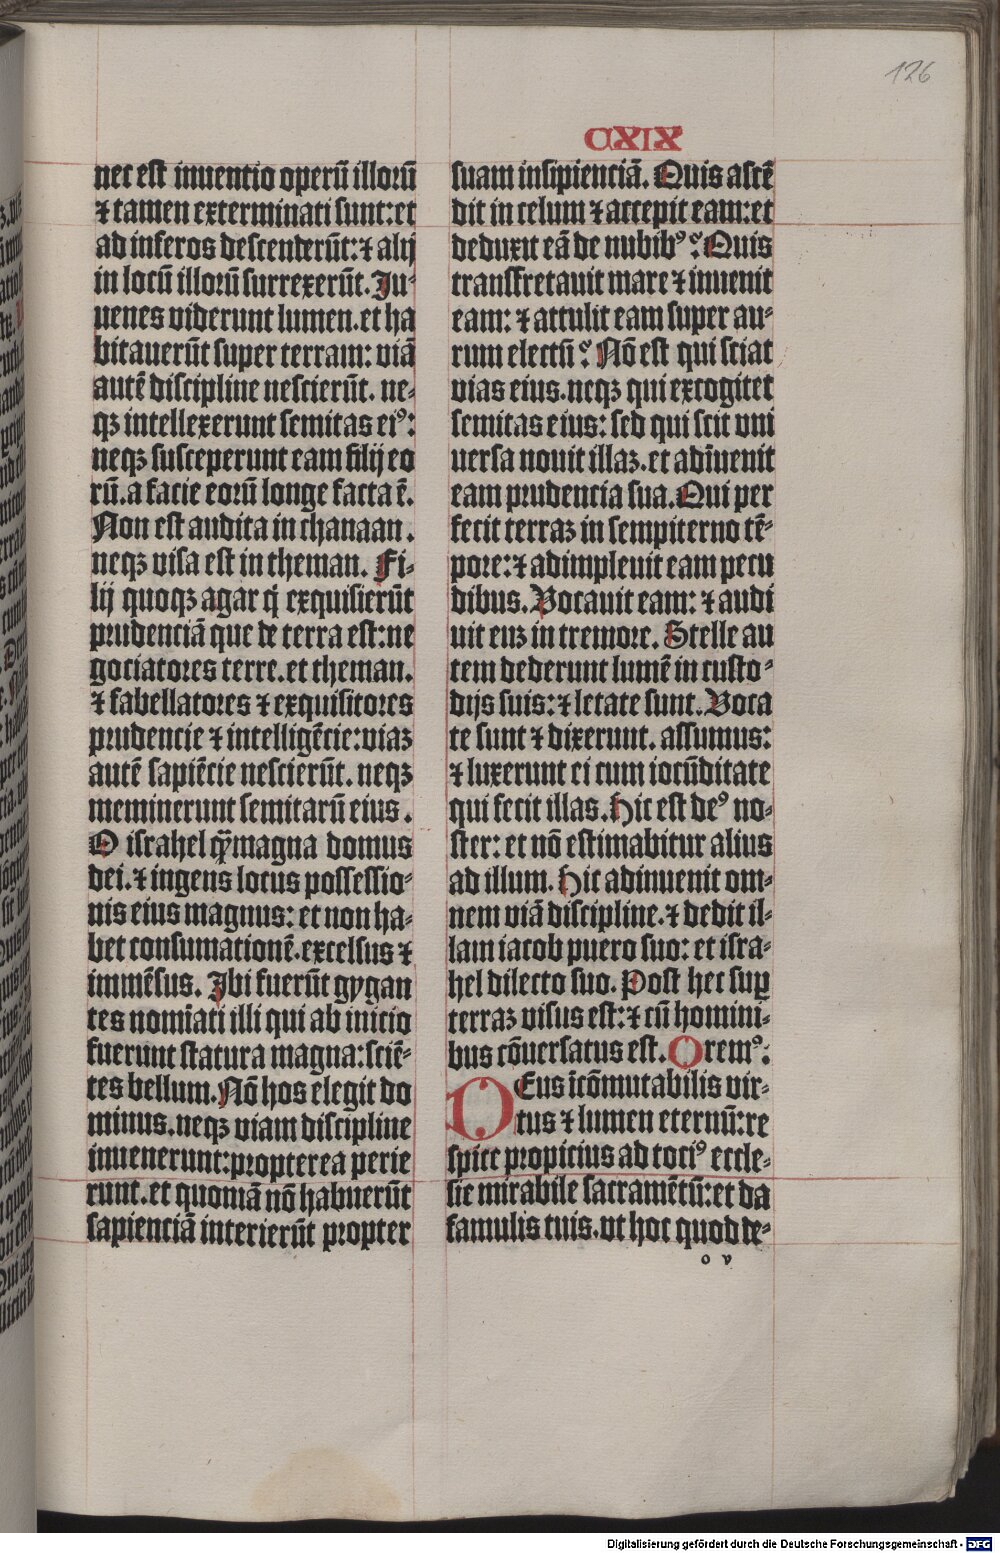 126
CXIX
nec est inuentio operũ illorũ
⁊ tamen exterminati sunt:et
ad inferos descenderũt:⁊ alij
in locũ illorũ surrexerũt. Ju⸗
uenes viderunt lumen.et ha
bitauerũt super terram: viã
autẽ discipline nescierũt. ne⸗
qꝫ intellexerunt semitas eiꝰ:
neqꝫ susceperunt eam filij eo
rũ.a facie eorũ longe facta ẽ.
Non est audita in chanaan.
neqꝫ visa est in theman. Fi⸗
lij quoqꝫ agar q̃ exquisierũt
prudenciã que de terra est:ne
gociatores terre.et theman.
⁊ fabellatores ⁊ exquisitores
prudencie ⁊ intelligẽcie:viaꝫ
autẽ sapiẽcie nescierũt. neqꝫ
meminerunt semitarũ eius.
O israhel q̃ꝫmagna domus
dei.⁊ ingens locus possessio⸗
nis eius magnus: et non ha⸗
bet consumationẽ.excelsus ⁊
immẽsus. Ibi fuerũt gygan
tes nomĩati illi qui ab inicio
fuerunt statura magna:sciẽ⸗
tes bellum.Nõ hos elegit do
minus.neqꝫ viam discipline
inuenerunt:propterea perie
runt.et quoniã nõ habuerũt
sapienciã interierũt propter
suam insipienciã. Quis ascẽ
dit in celum ⁊ accepit eam:et
deduxit eã de nubibꝰ? Quis
transfretauit mare ⁊ inuenit
eam: ⁊ attulit eam super au⸗
rum electũ? Nõ est qui sciat
vias eius.neqꝫ qui excogitet
semitas eius: sed qui scit vni
uersa nouit illaꝫ.et adĩuenit
eam prudencia sua.Qui per
fecit terraꝫ in sempiterno tẽ⸗
pore:⁊ adimpleuit eam pecu
dibus. Vocauit eam: ⁊ audi
uit euꝫ in tremore. Stelle au
tem dederunt lumẽ in custo⸗
dijs suis:⁊ letate sunt. Voca
te sunt ⁊ dixerunt. assumus:
⁊ luxerunt ei cum iocũditate
qui fecit illas. Hic est deꝰ no⸗
ster: et nõ estimabitur alius
ad illum. Hic adinuenit om⸗
nem viã discipline.⁊ dedit il⸗
lam iacob puero suo: et isra⸗
hel dilecto suo. Post hec suꝑ
terraꝫ visus est:⁊ cũ homini⸗
bus cõuersatus est. Oremꝰ:
DEus ĩcõmutabilis vir⸗
tus ⁊ lumen eternũ:re
spice propicius ad tociꝰ eccle⸗
sie mirabile sacramẽtũ:et da
famulis tuis.vt hoc quod de⸗
o v
Digitalisierung gefördert durch die Deutsche Forschungsgemeinschaft - DFG